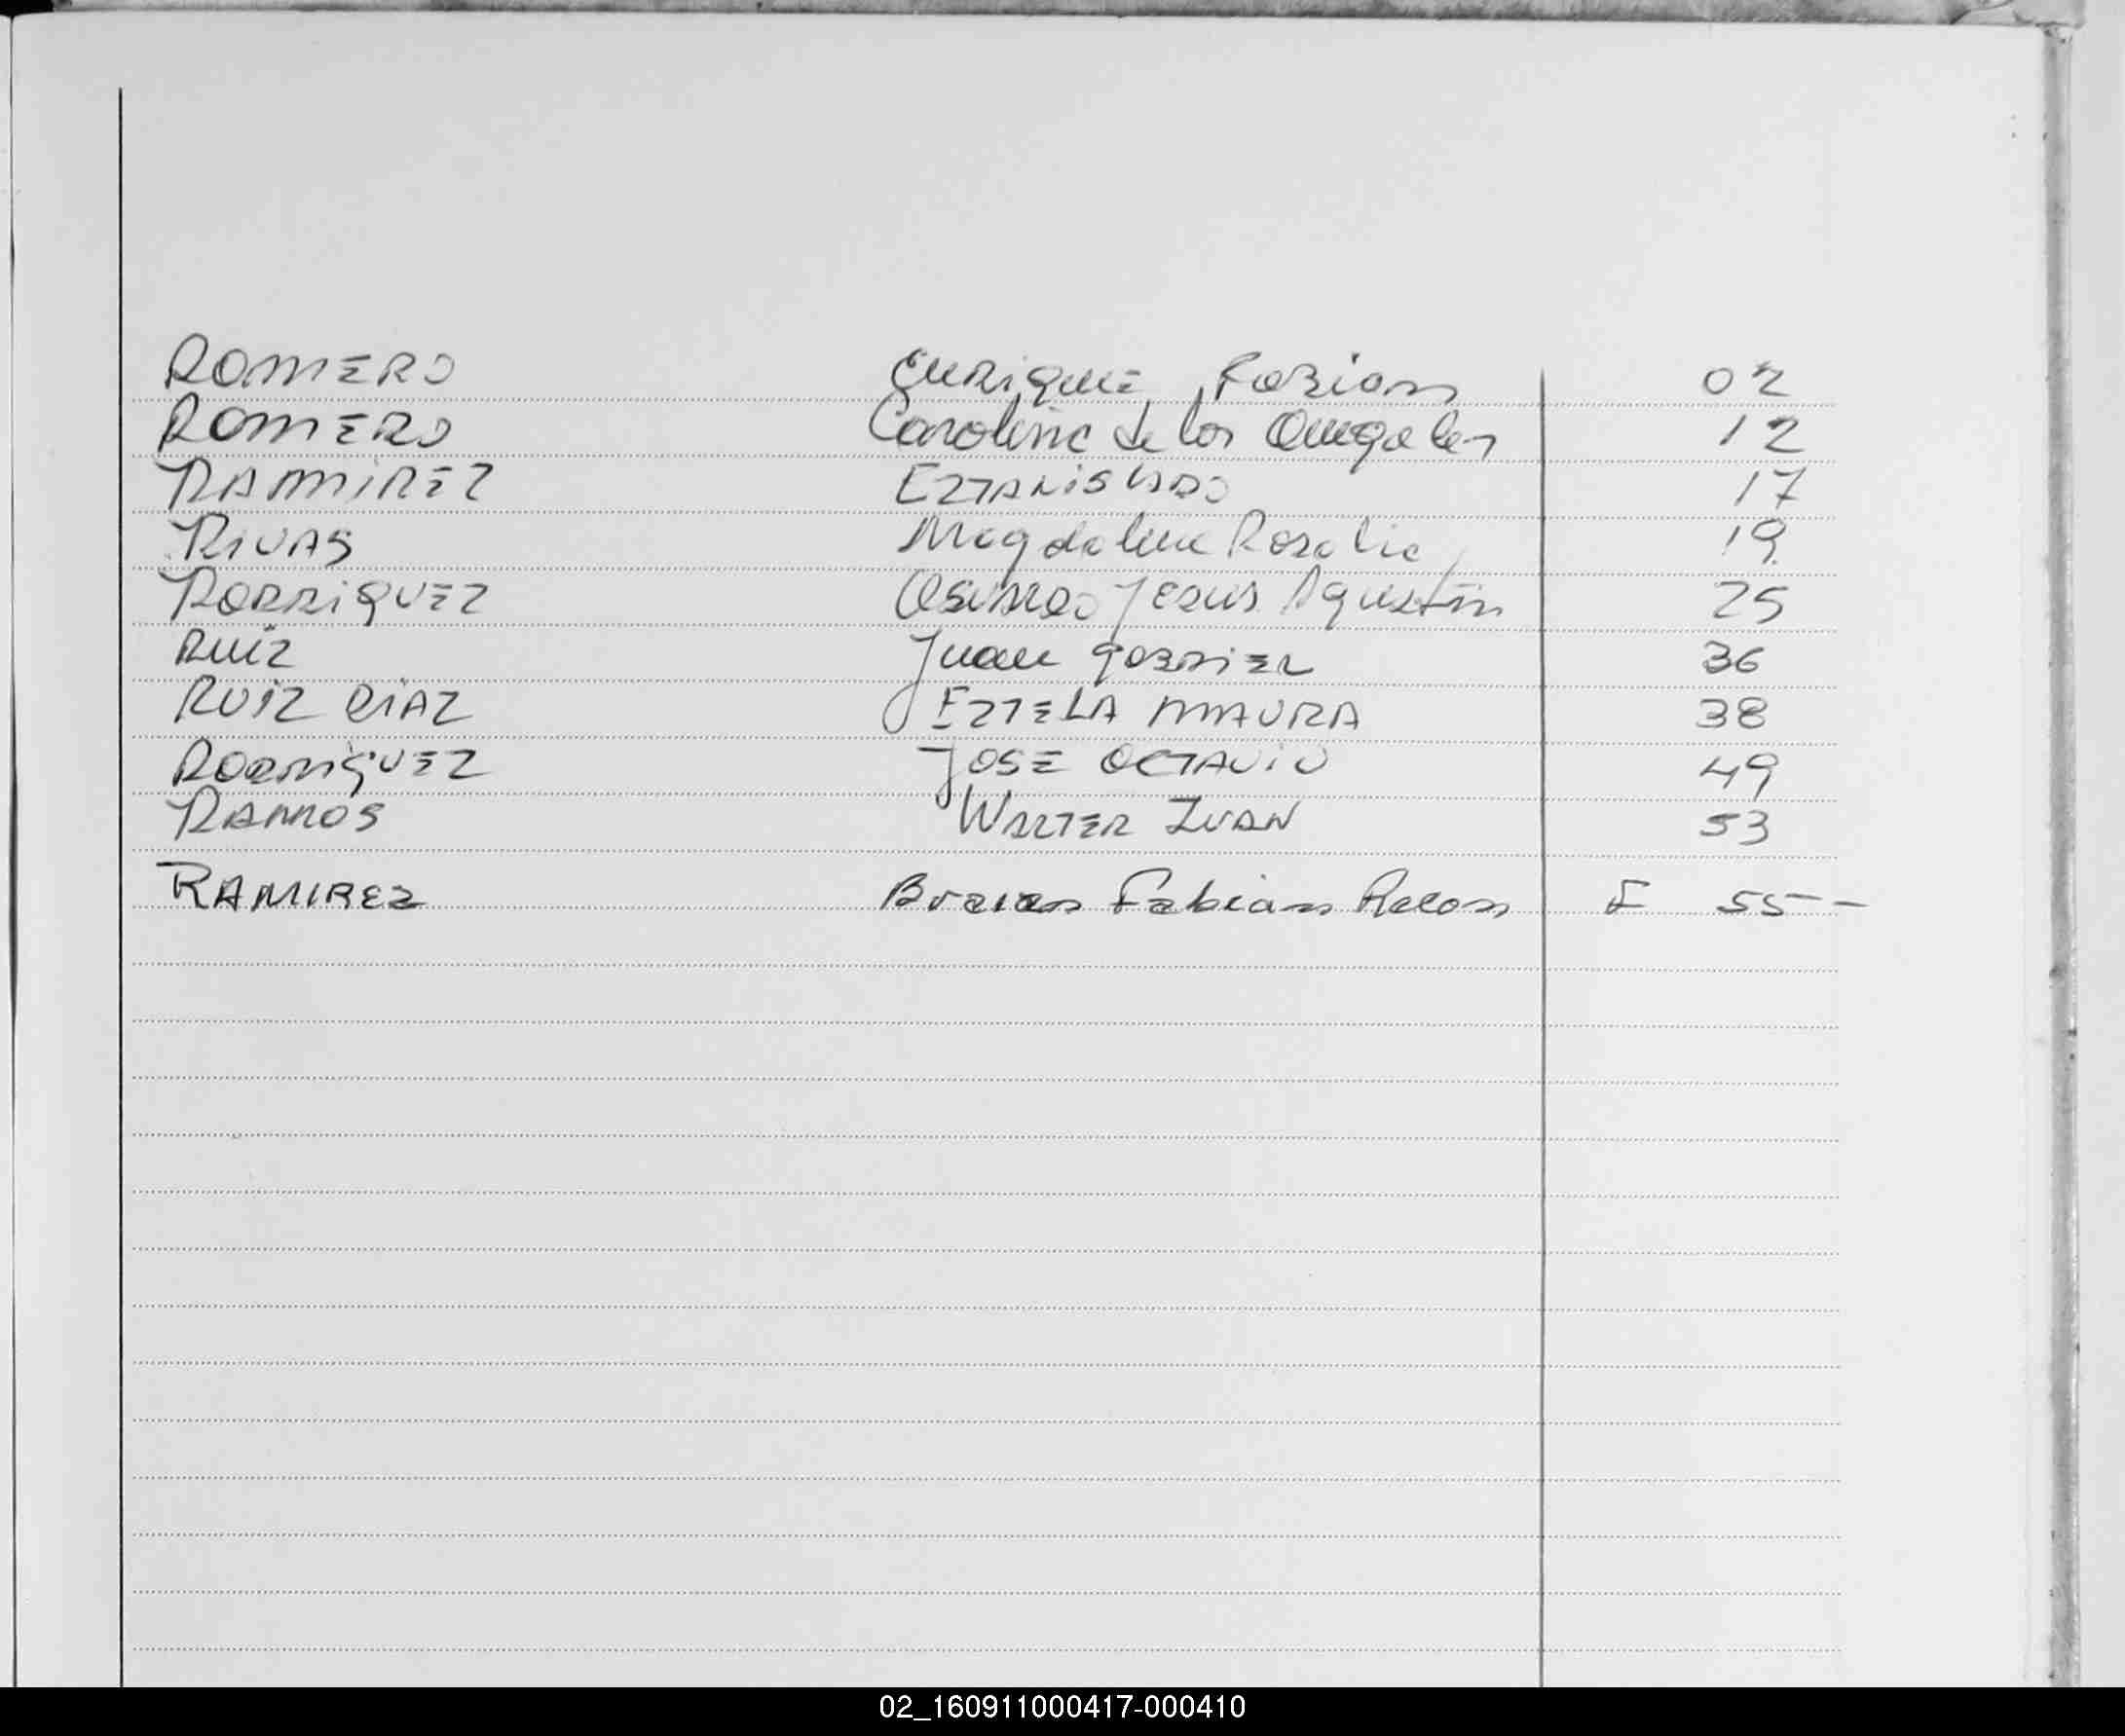 ROMERO Enrique Fabian 02
ROMERO Carolina de los Angeles 12
RAMIREZ ESTANISLADO 17
RIVAS Magdalena Rosalia 19
RODRIGUEZ Osvaldo Jesus Agustin 25
RUIZ Juan Gabriel 36
RUIZ DIAZ ESTELA MAURA 38
RODRIGUEZ JOSE OCTAVIO 49
RAMOS WALTER IVAN 53
RAMIREZ Braian Fabian F 55
02_160911000417-000410